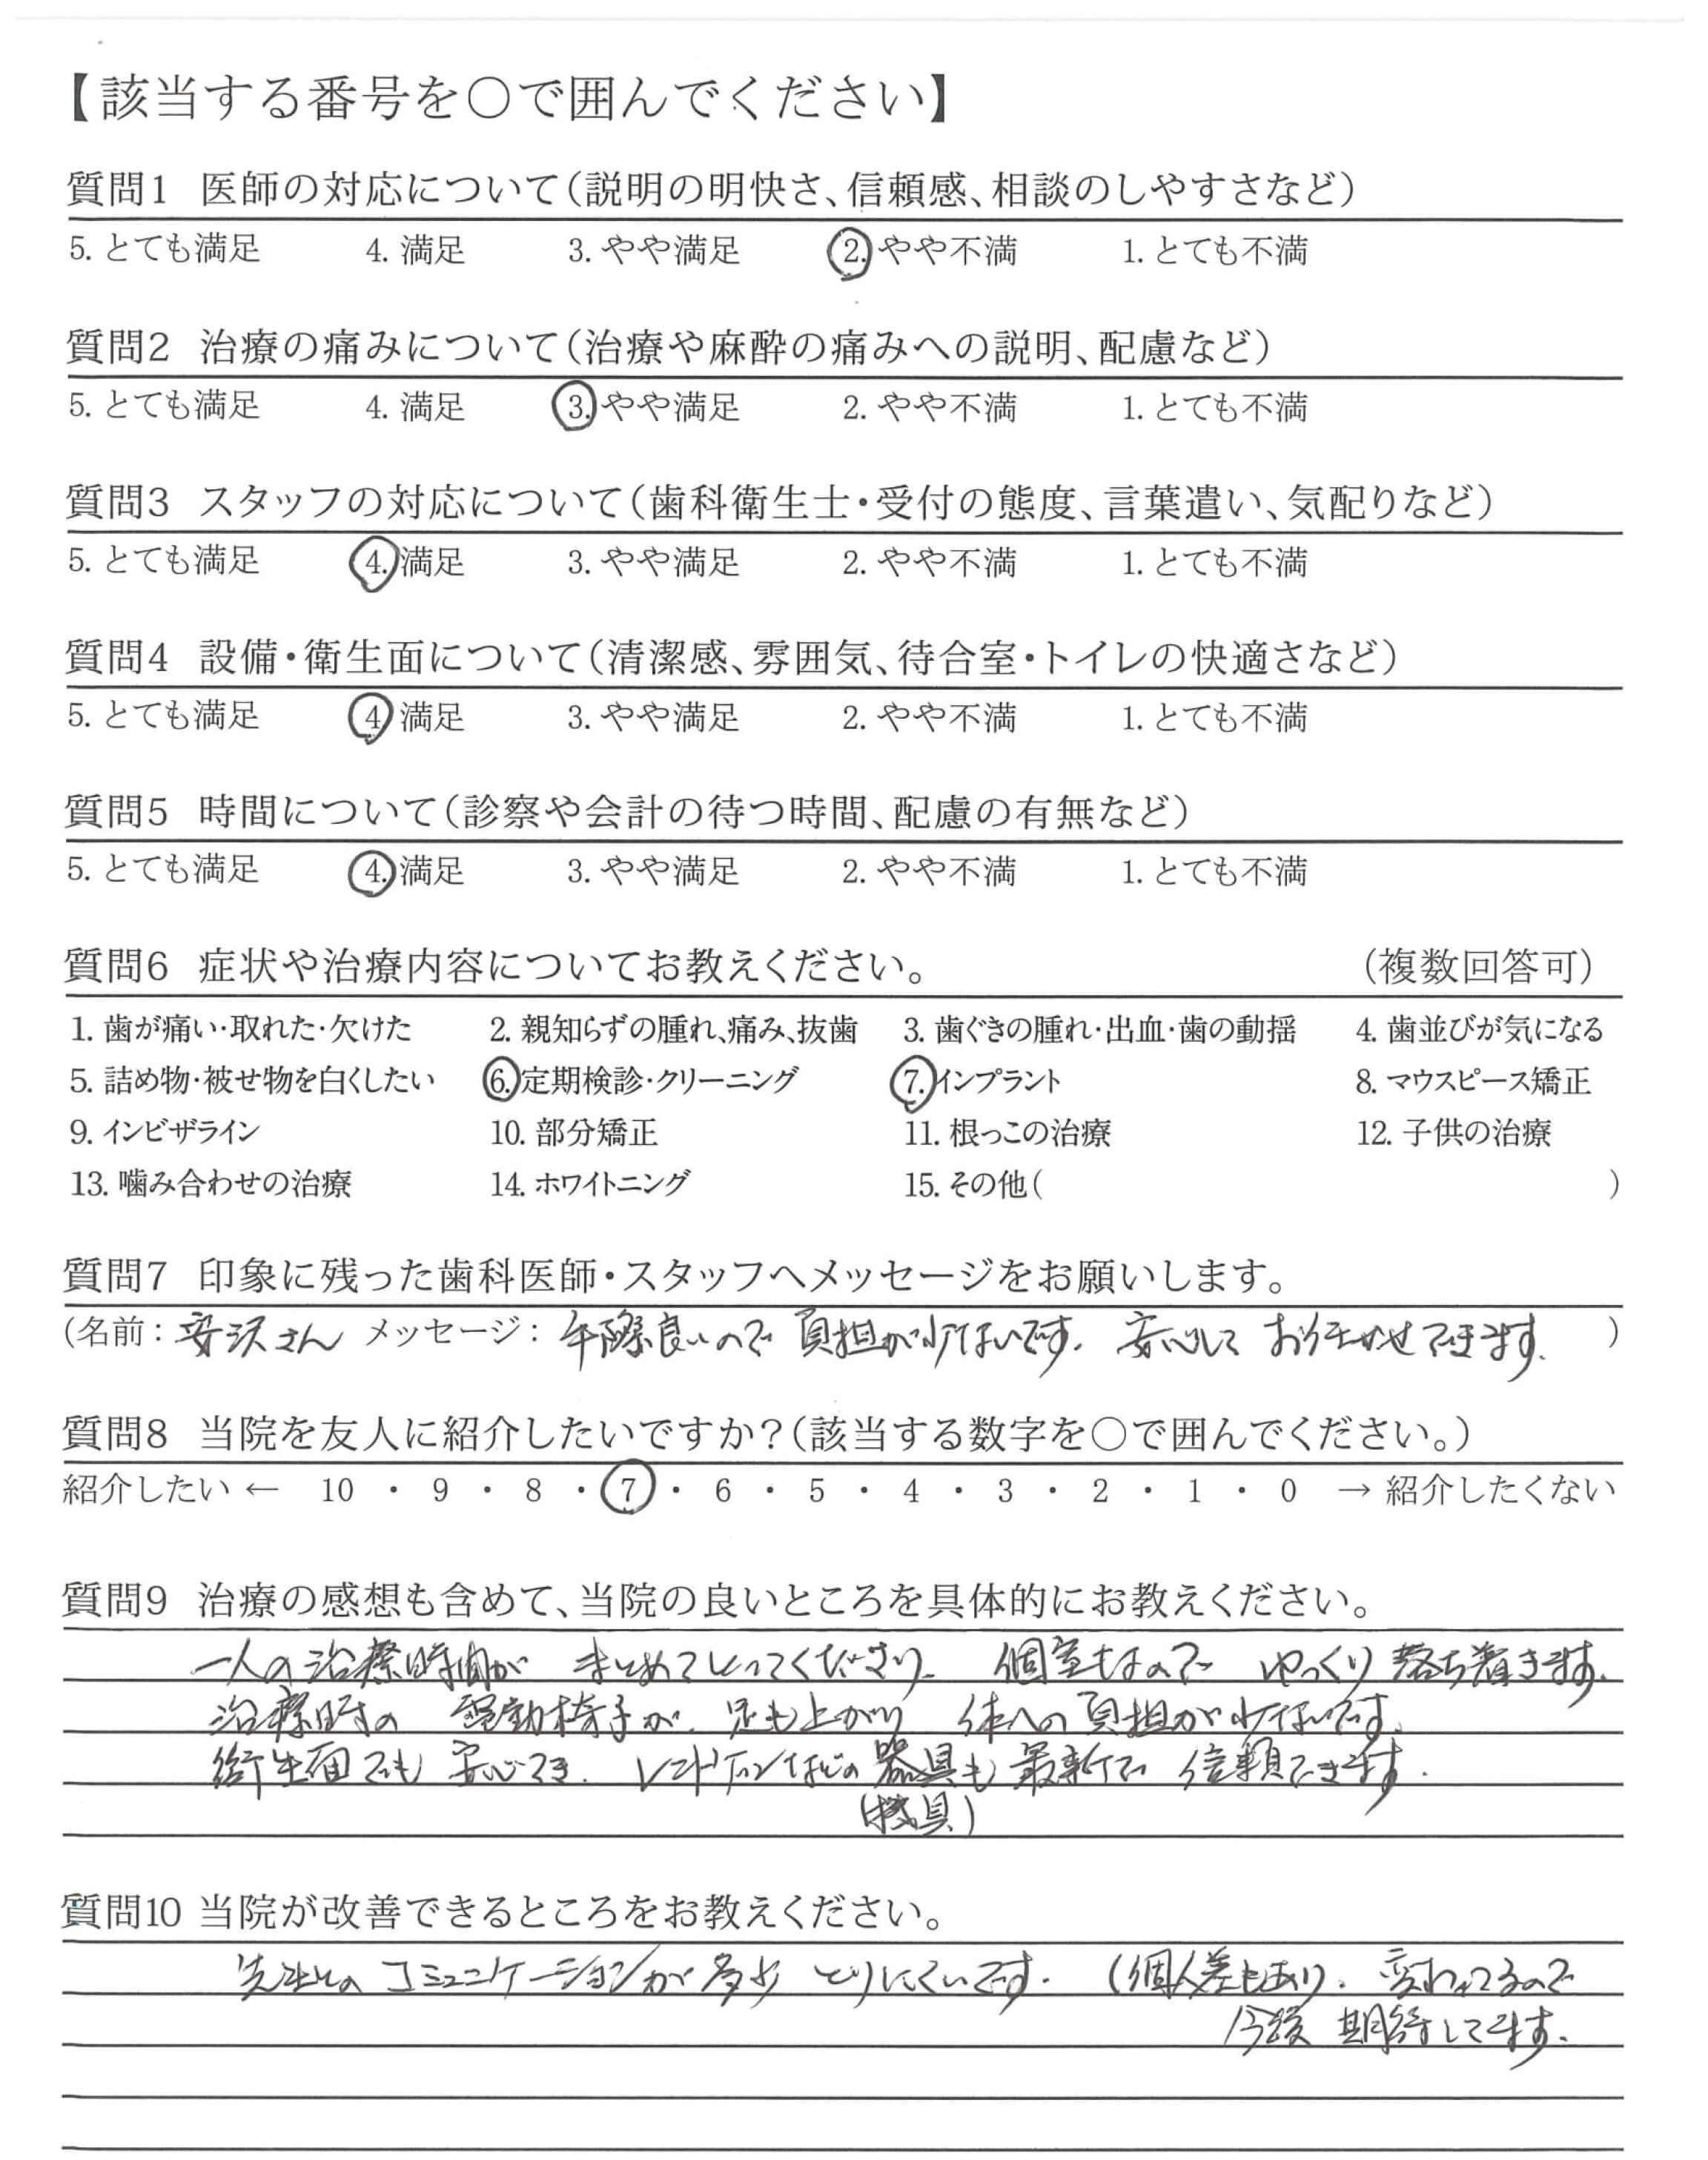 【該当する番号を○で囲んでください】
質問1 医師の対応について(説明の明快さ、信頼感、相談のしやすさなど)
5. とても満足 4. 満足 3. やや満足 2. やや不満 1. とても不満
質問2 治療の痛みについて(治療や麻酔の痛みへの説明、配慮など)
5. とても満足 4. 満足 3. やや満足 2. やや不満 1. とても不満
質問3 スタッフの対応について(歯科衛生士・受付の態度、言葉遣い、気配りなど)
5. とても満足 4. 満足 3. やや満足 2. やや不満 1. とても不満
質問4 設備・衛生面について(清潔感、雰囲気、待合室・トイレの快適さなど)
5. とても満足 4. 満足 3. やや満足 2. やや不満 1. とても不満
質問5 時間について(診察や会計の待つ時間、配慮の有無など)
5. とても満足 4. 満足 3. やや満足 2. やや不満 1. とても不満
質問6 症状や治療内容についてお教えください。 (複数回答可)
1. 歯が痛い・取れた・欠けた 2. 親知らずの腫れ、痛み、抜歯 3. 歯ぐきの腫れ・出血・歯の動揺 4. 歯並びが気になる
5. 詰め物・被せ物を白くしたい 6. 定期検診・クリーニング 7. インプラント 8. マウスピース矯正
9. インビザライン 10. 部分矯正 11. 根っこの治療 12. 子供の治療
13. 噛み合わせの治療 14. ホワイトニング 15. その他( )
質問7 印象に残った歯科医師・スタッフへメッセージをお願いします。
(名前: 安沢さん メッセージ: 手際良いので 負担が少ないです. 安心して お任かせできます. )
質問8 当院を友人に紹介したいですか?(該当する数字を○で囲んでください。)
紹介したい ← 10 ・ 9 ・ 8 ・ 7 ・ 6 ・ 5 ・ 4 ・ 3 ・ 2 ・ 1 ・ 0 → 紹介したくない
質問9 治療の感想も含めて、当院の良いところを具体的にお教えください。
一人の治療時間が まとめてとってくださり. 個室なので ゆっくり 落ち着きます.
治療時の 電動椅子が. 足も上がり 体への 負担が少ないです.
衛生面でも 安心でき. レントゲンなどの 器具も 最新で 信頼できます.
(機具)
質問10 当院が改善できるところをお教えください。
先生との コミュニケーションが 多少 とりにくいです. (個人差もあり. 変わってるので
今後 期待してます.